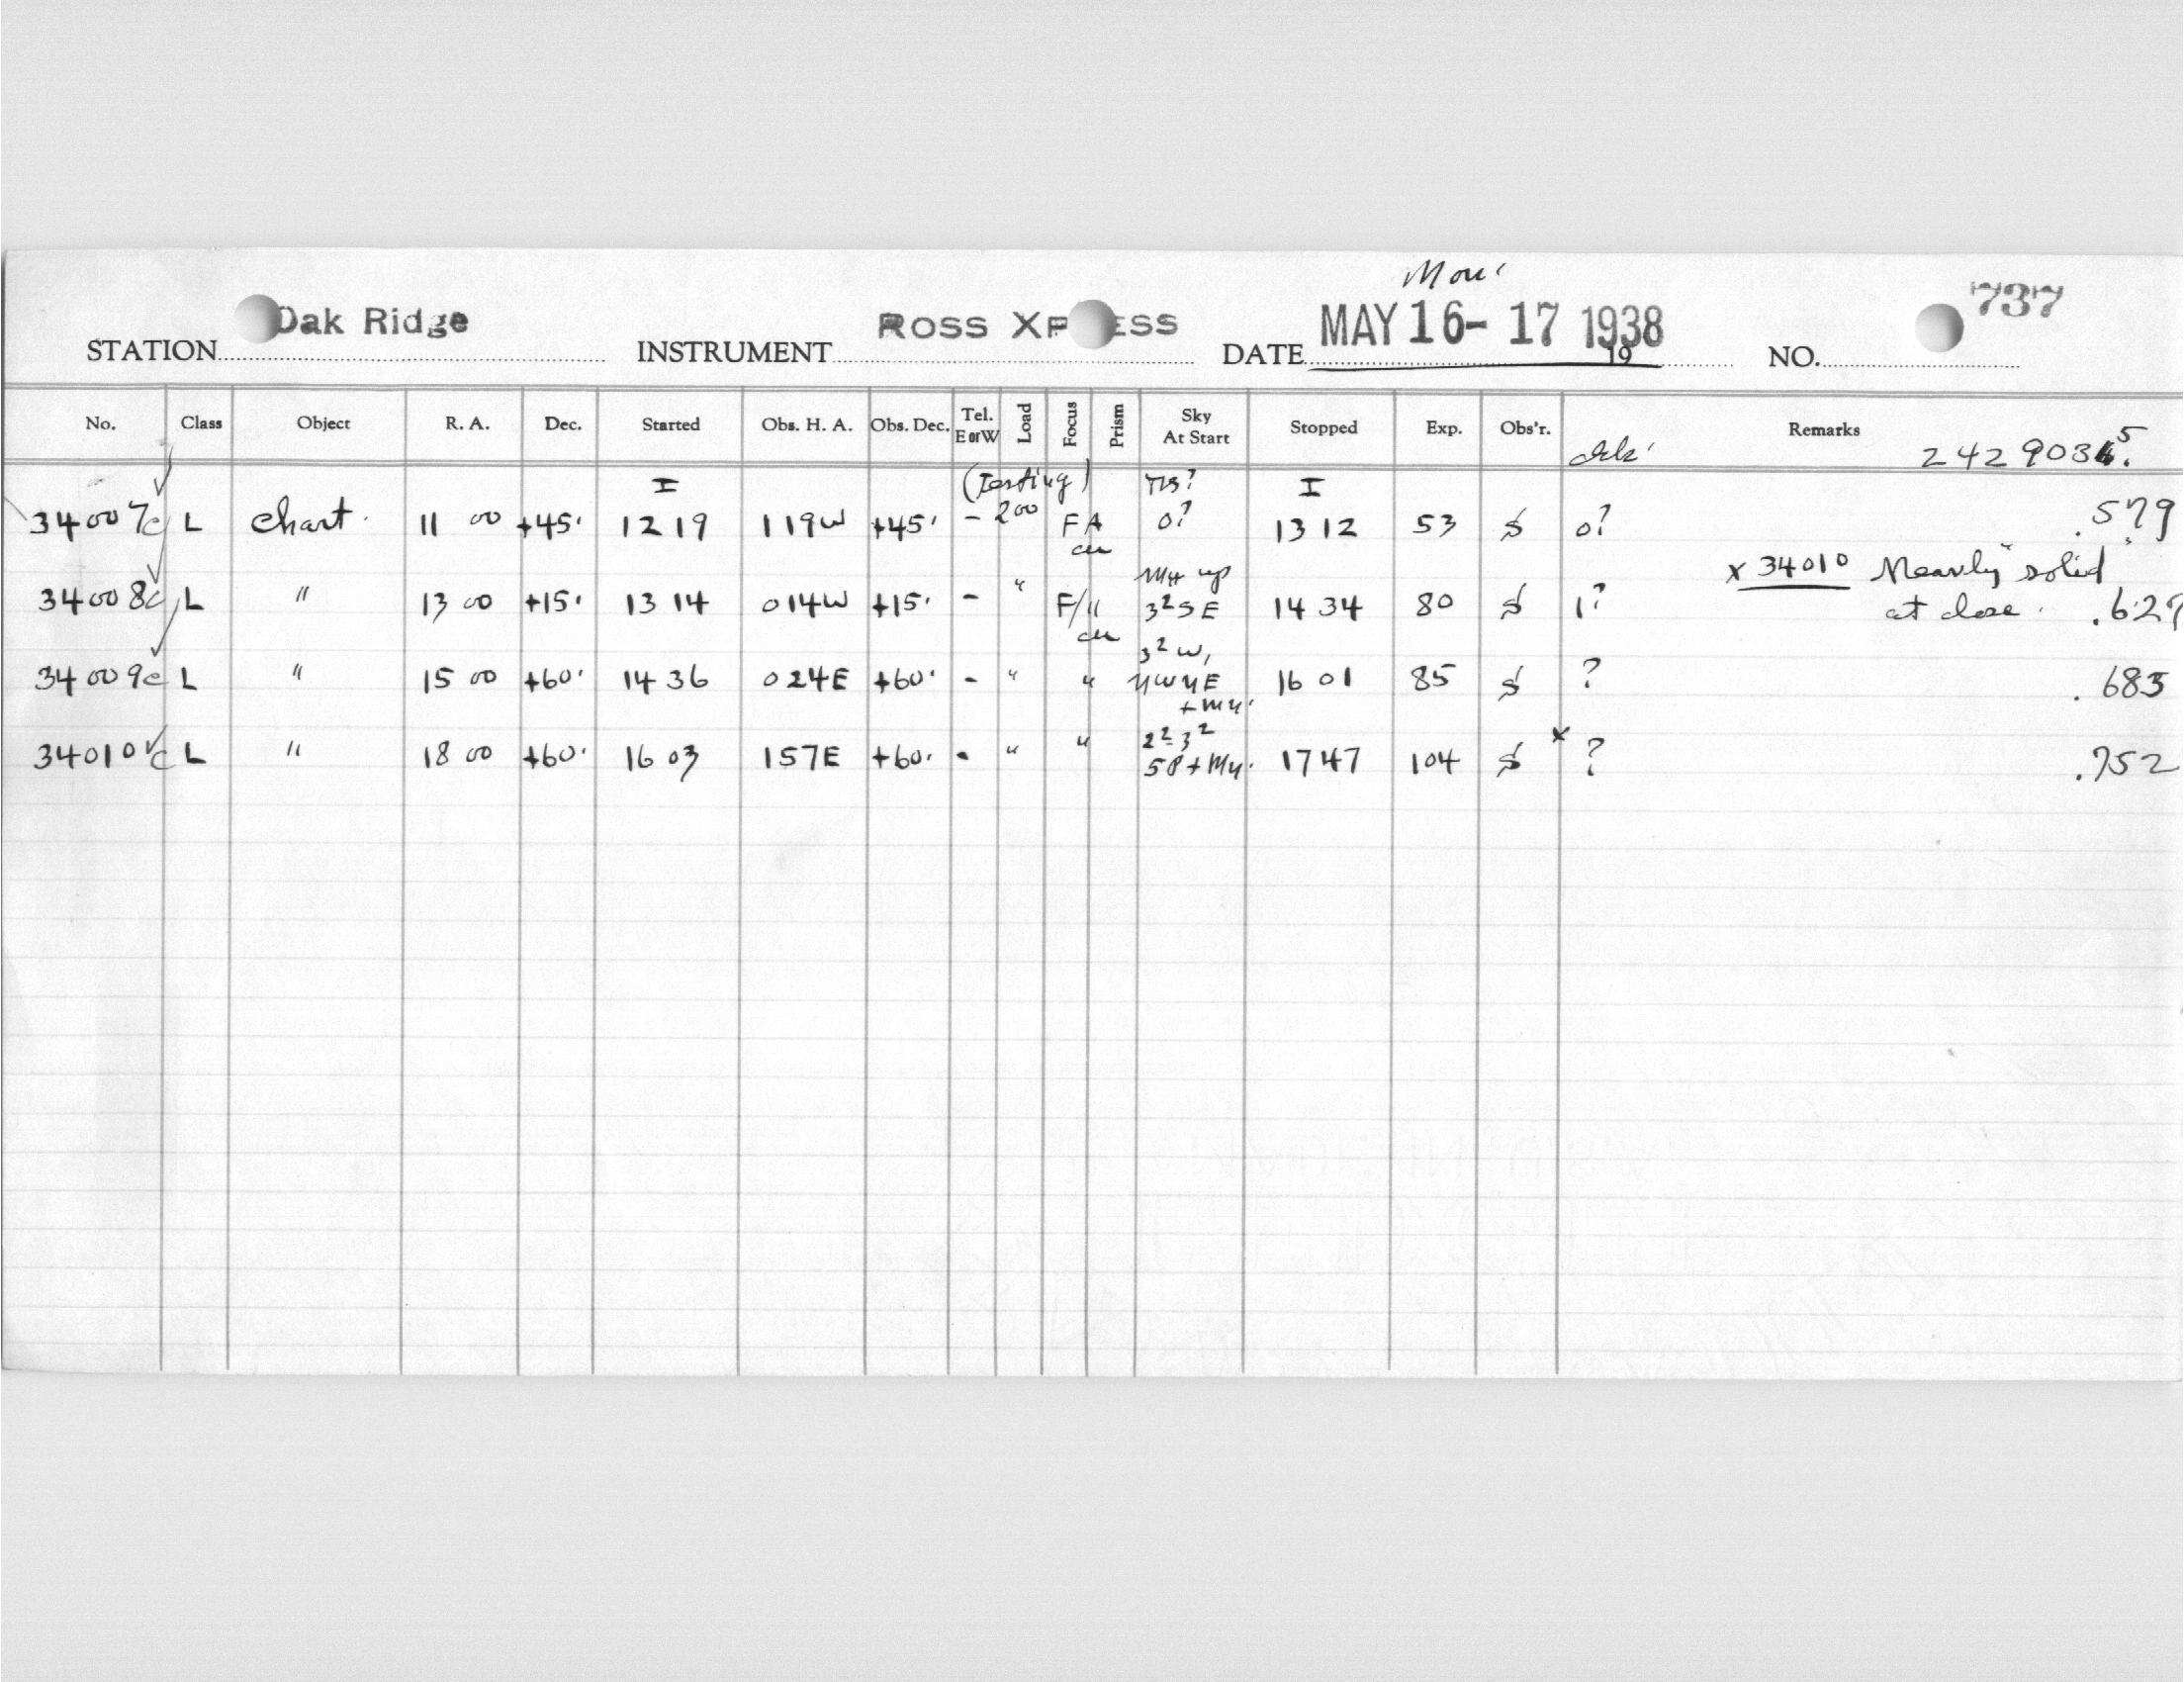 Mon'
STATION Oak Ridge INSTRUMENT ROSS XP ESS DATE MAY 16-17 1938 19 NO. 737
No. Class Object R. A. Dec. Started Obs. H. A. Obs. Dec. Tel. E or W Load Focus Prism Sky At Start Stopped Exp. Obs'r. Remarks
2429035.
I (Testing) I
34007c L Chart. 11 00 +45' 12 19 119W +45' - 200 FA 0? 13 12 53 $ 0? .579
x 34010 Nearly "solid"
34008c L " 13 00 +15' 13 14 014W +15' - " F/11 3²SE 14 34 80 $ 1? at close. .629
3²W,
34009c L " 15 00 +60' 14 36 024E +60' - " " 16 01 85 $ ? .683
2²-3²
34010c L " 18 00 +60' 16 03 157E +60' - " " 17 47 104 $ x ? .752